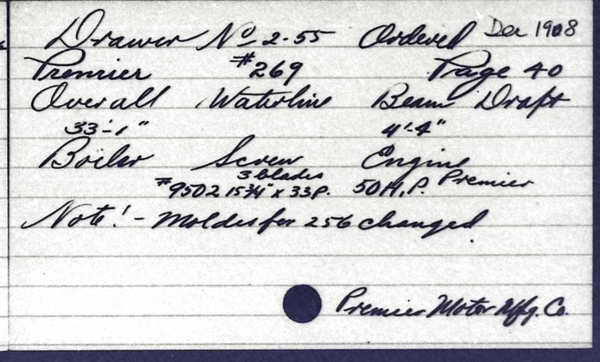 Drawer No 2-55 Ordered Dec 1908
Premier #269 Page 40
Overall Waterline Beam Draft
33'-1" 4'-4"
Boiler Screw Engine
3 blades
#9502 15¾" x 33P. 50H.P. Premier
Note! - Molds for 256 changed
Premier Motor Mfg. Co.